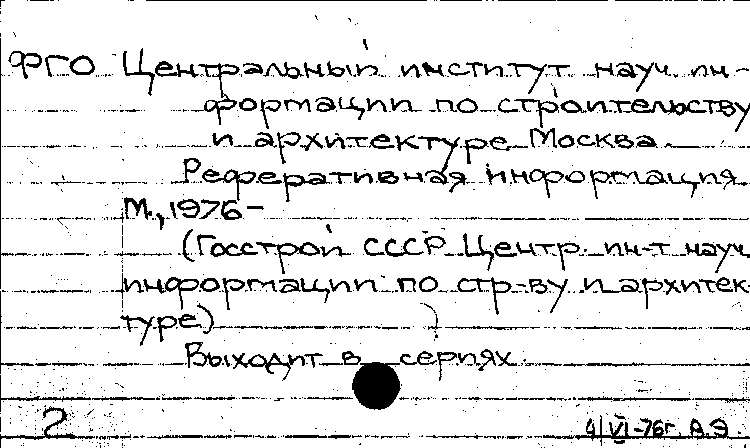 ФГО Центральный институт науч. ин-
формации по строительству
и архитектуре. Москва.
Реферативная информация.
М., 1976-
(Госстрой СССР. Центр. ин-т науч.
информации по стр-ву и архитек-
туре)
Выходит в сериях.
2
4/VI-76г. А.Э.